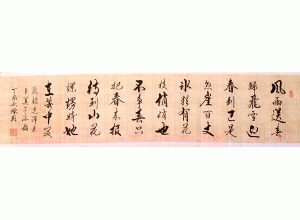 風雨送春
歸飛雪迎
春到已是
懸崖百丈
冰猶有花
枝俏俏也
不争春只
把春来报
待到山花
爛漫時她
在叢中笑
毛澤東
卜算子詠梅